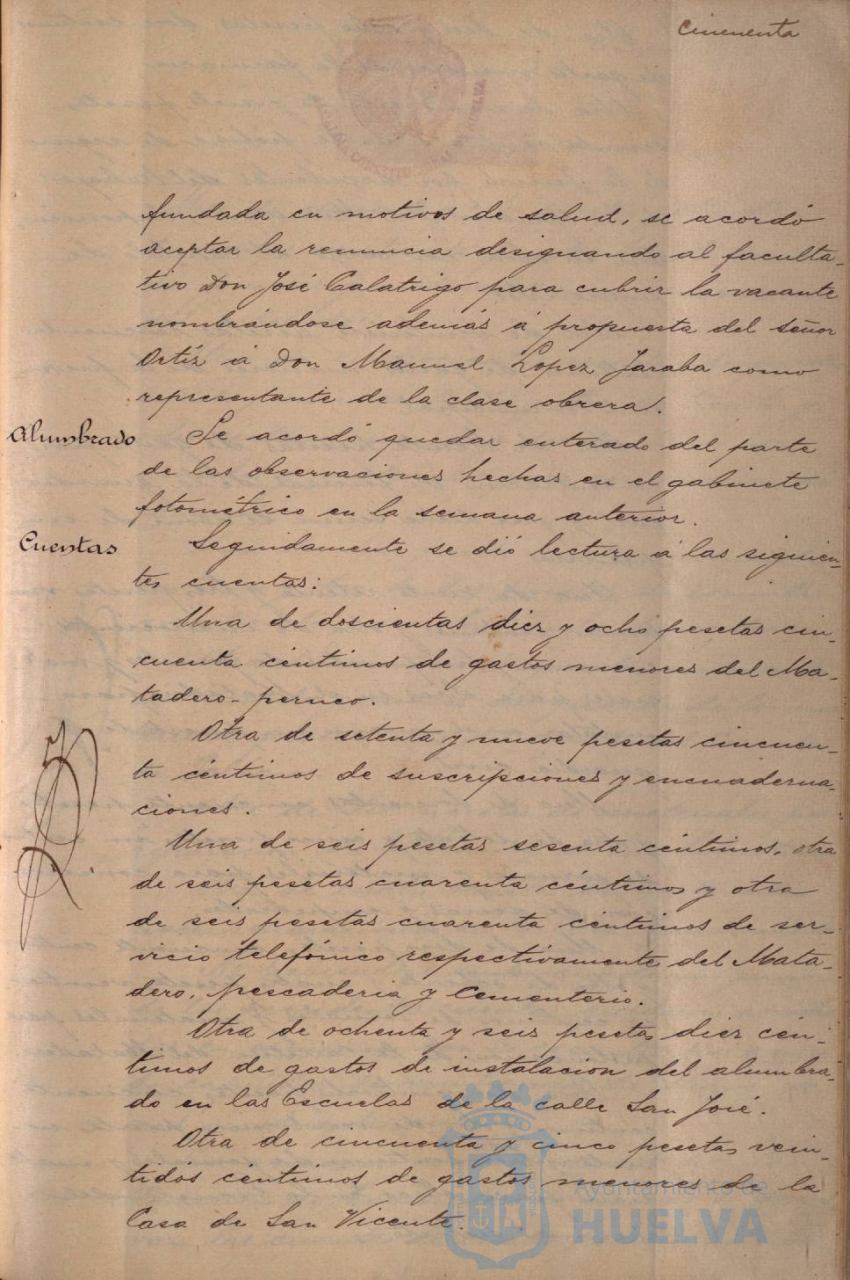 Cincuenta
fundada en motivos de salud, se acordó
aceptar la renuncia designando al faculta-
tivo Don José Calatrigo para cubrir la vacante
nombrándose además á propuesta del señor
Ortíz á Don Manuel Lopez Jaraba como
representante de la clase obrera.
Alumbrado
Se acordó quedar enterado del parte
de las observaciones hechas en el gabinete
fotométrico en la semana anterior.
Cuentas
Seguidamente se dió lectura á las siguien-
tes cuentas:
Una de doscientas diez y ocho pesetas cin-
cuenta céntimos de gastos menores del Ma-
tadero-perneo.
Otra de setenta y nueve pesetas cincuen-
ta céntimos de suscripciones y encuaderna-
ciones.
Una de seis pesetas sesenta céntimos, otra
de seis pesetas cuarenta céntimos y otra
de seis pesetas cuarenta céntimos de ser-
vicio telefónico respectivamente del Mata-
dero, pescaderia y Cementerio.
Otra de ochenta y seis pesetas diez cén-
timos de gastos de instalacion del alumbra-
do en las Escuelas de la calle San José.
Otra de cincuenta y cinco pesetas vein-
tidós céntimos de gastos menores de la
Casa de San Vicente.
Ayuntamiento de
HUELVA